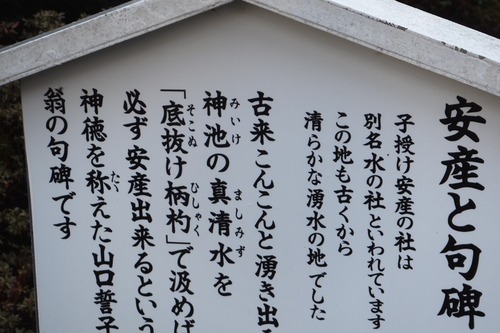 安産と句碑
子授け安産の社は
別名水の社といわれています
この地も古くから
清らかな湧水の地でした
古来こんこんと湧き出
神池の真清水を
みいけ ましみず
「底抜け柄杓」で汲めば
そこぬ ひしゃく
必ず安産出来るという
神徳を称えた山口誓子
たた
翁の句碑です